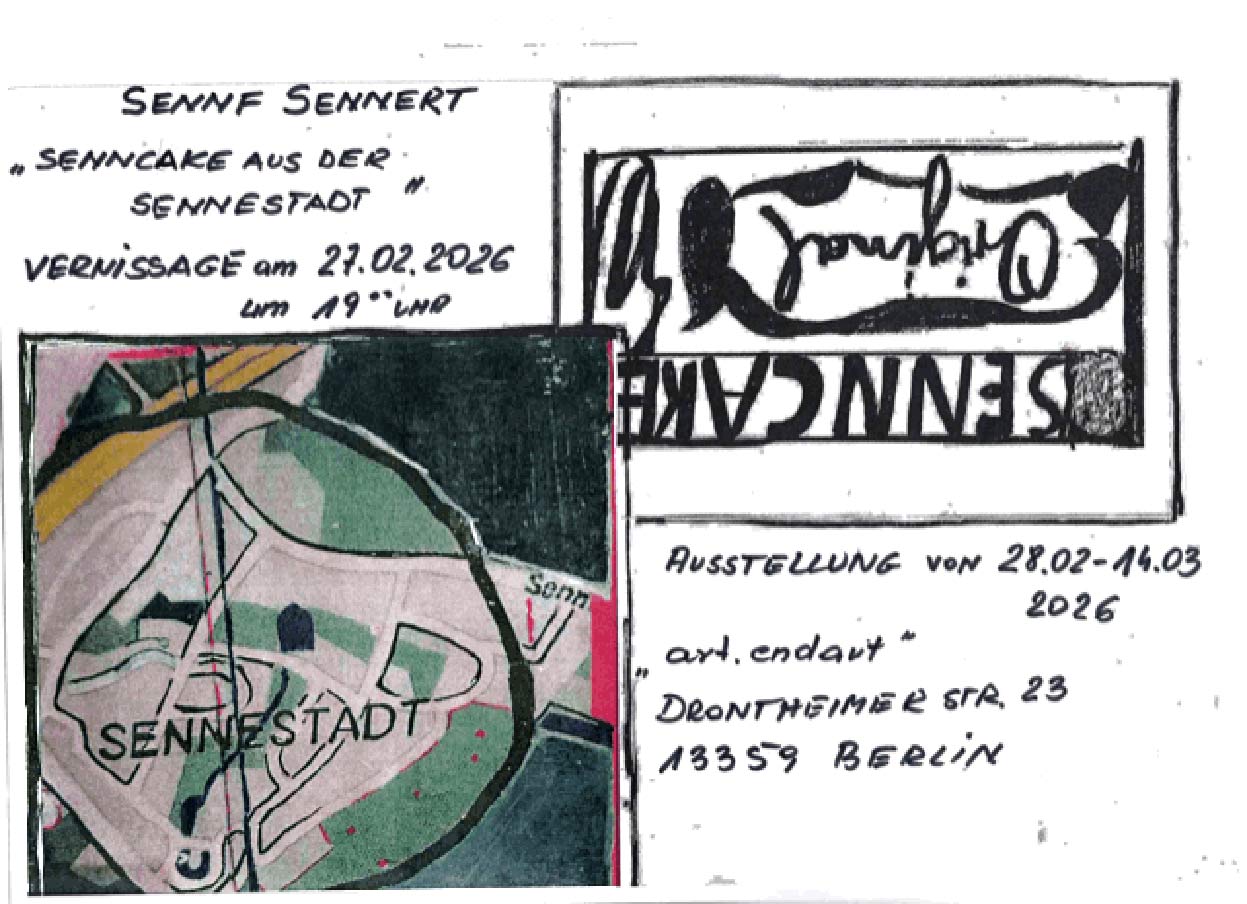 SENNF SENNERT
„SENNCAKE AUS DER
SENNESTADT"
VERNISSAGE am 27.02.2026
um 19°° UHR
Original
SENNCAKE
Senn
SENNESTADT
AUSSTELLUNG VON 28.02-14.03
2026
„art.endart"
DRONTHEIMER STR. 23
13359 BERLIN